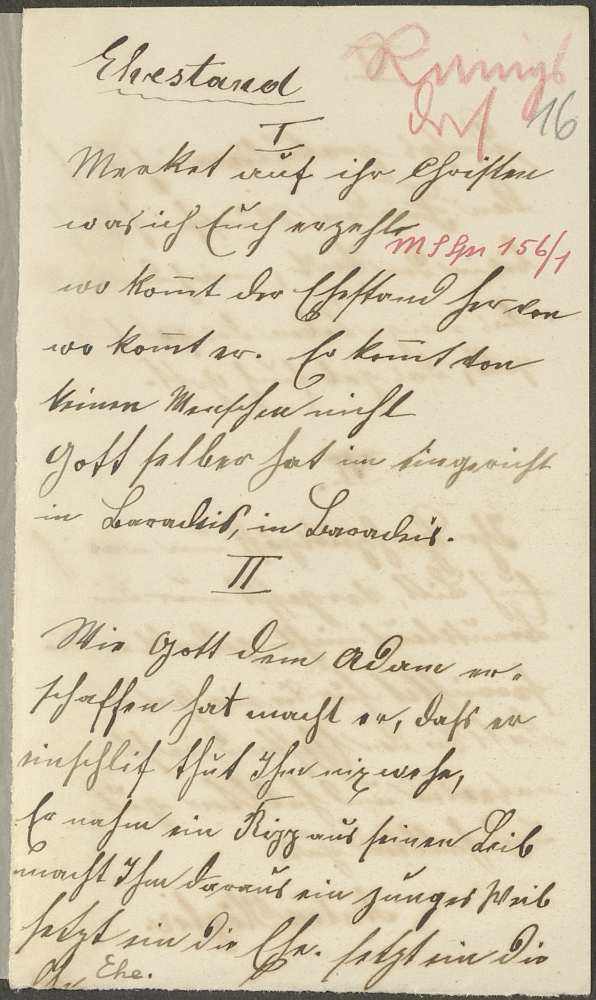 Ehestand
16
I
Merket auf ihr Christen
was ich Euch erzehle
MS Gr 156/1
wo kom̅t der Ehestand her von
wo kom̅t er. Er kom̅t von
keinen Menschen nicht
Gott selber hat im eingericht
in Baradeis, in Baradeis.
II
Wie Gott dem Adam er-
schaffen hat macht er, daſs er
einschlif thut Ihm nix wehe,
Er nahm ein Ripp aus seinen Leib
macht Ihm daraus ein junges Weib
setzt ein die Ehe. setzt ein die
Ehe.